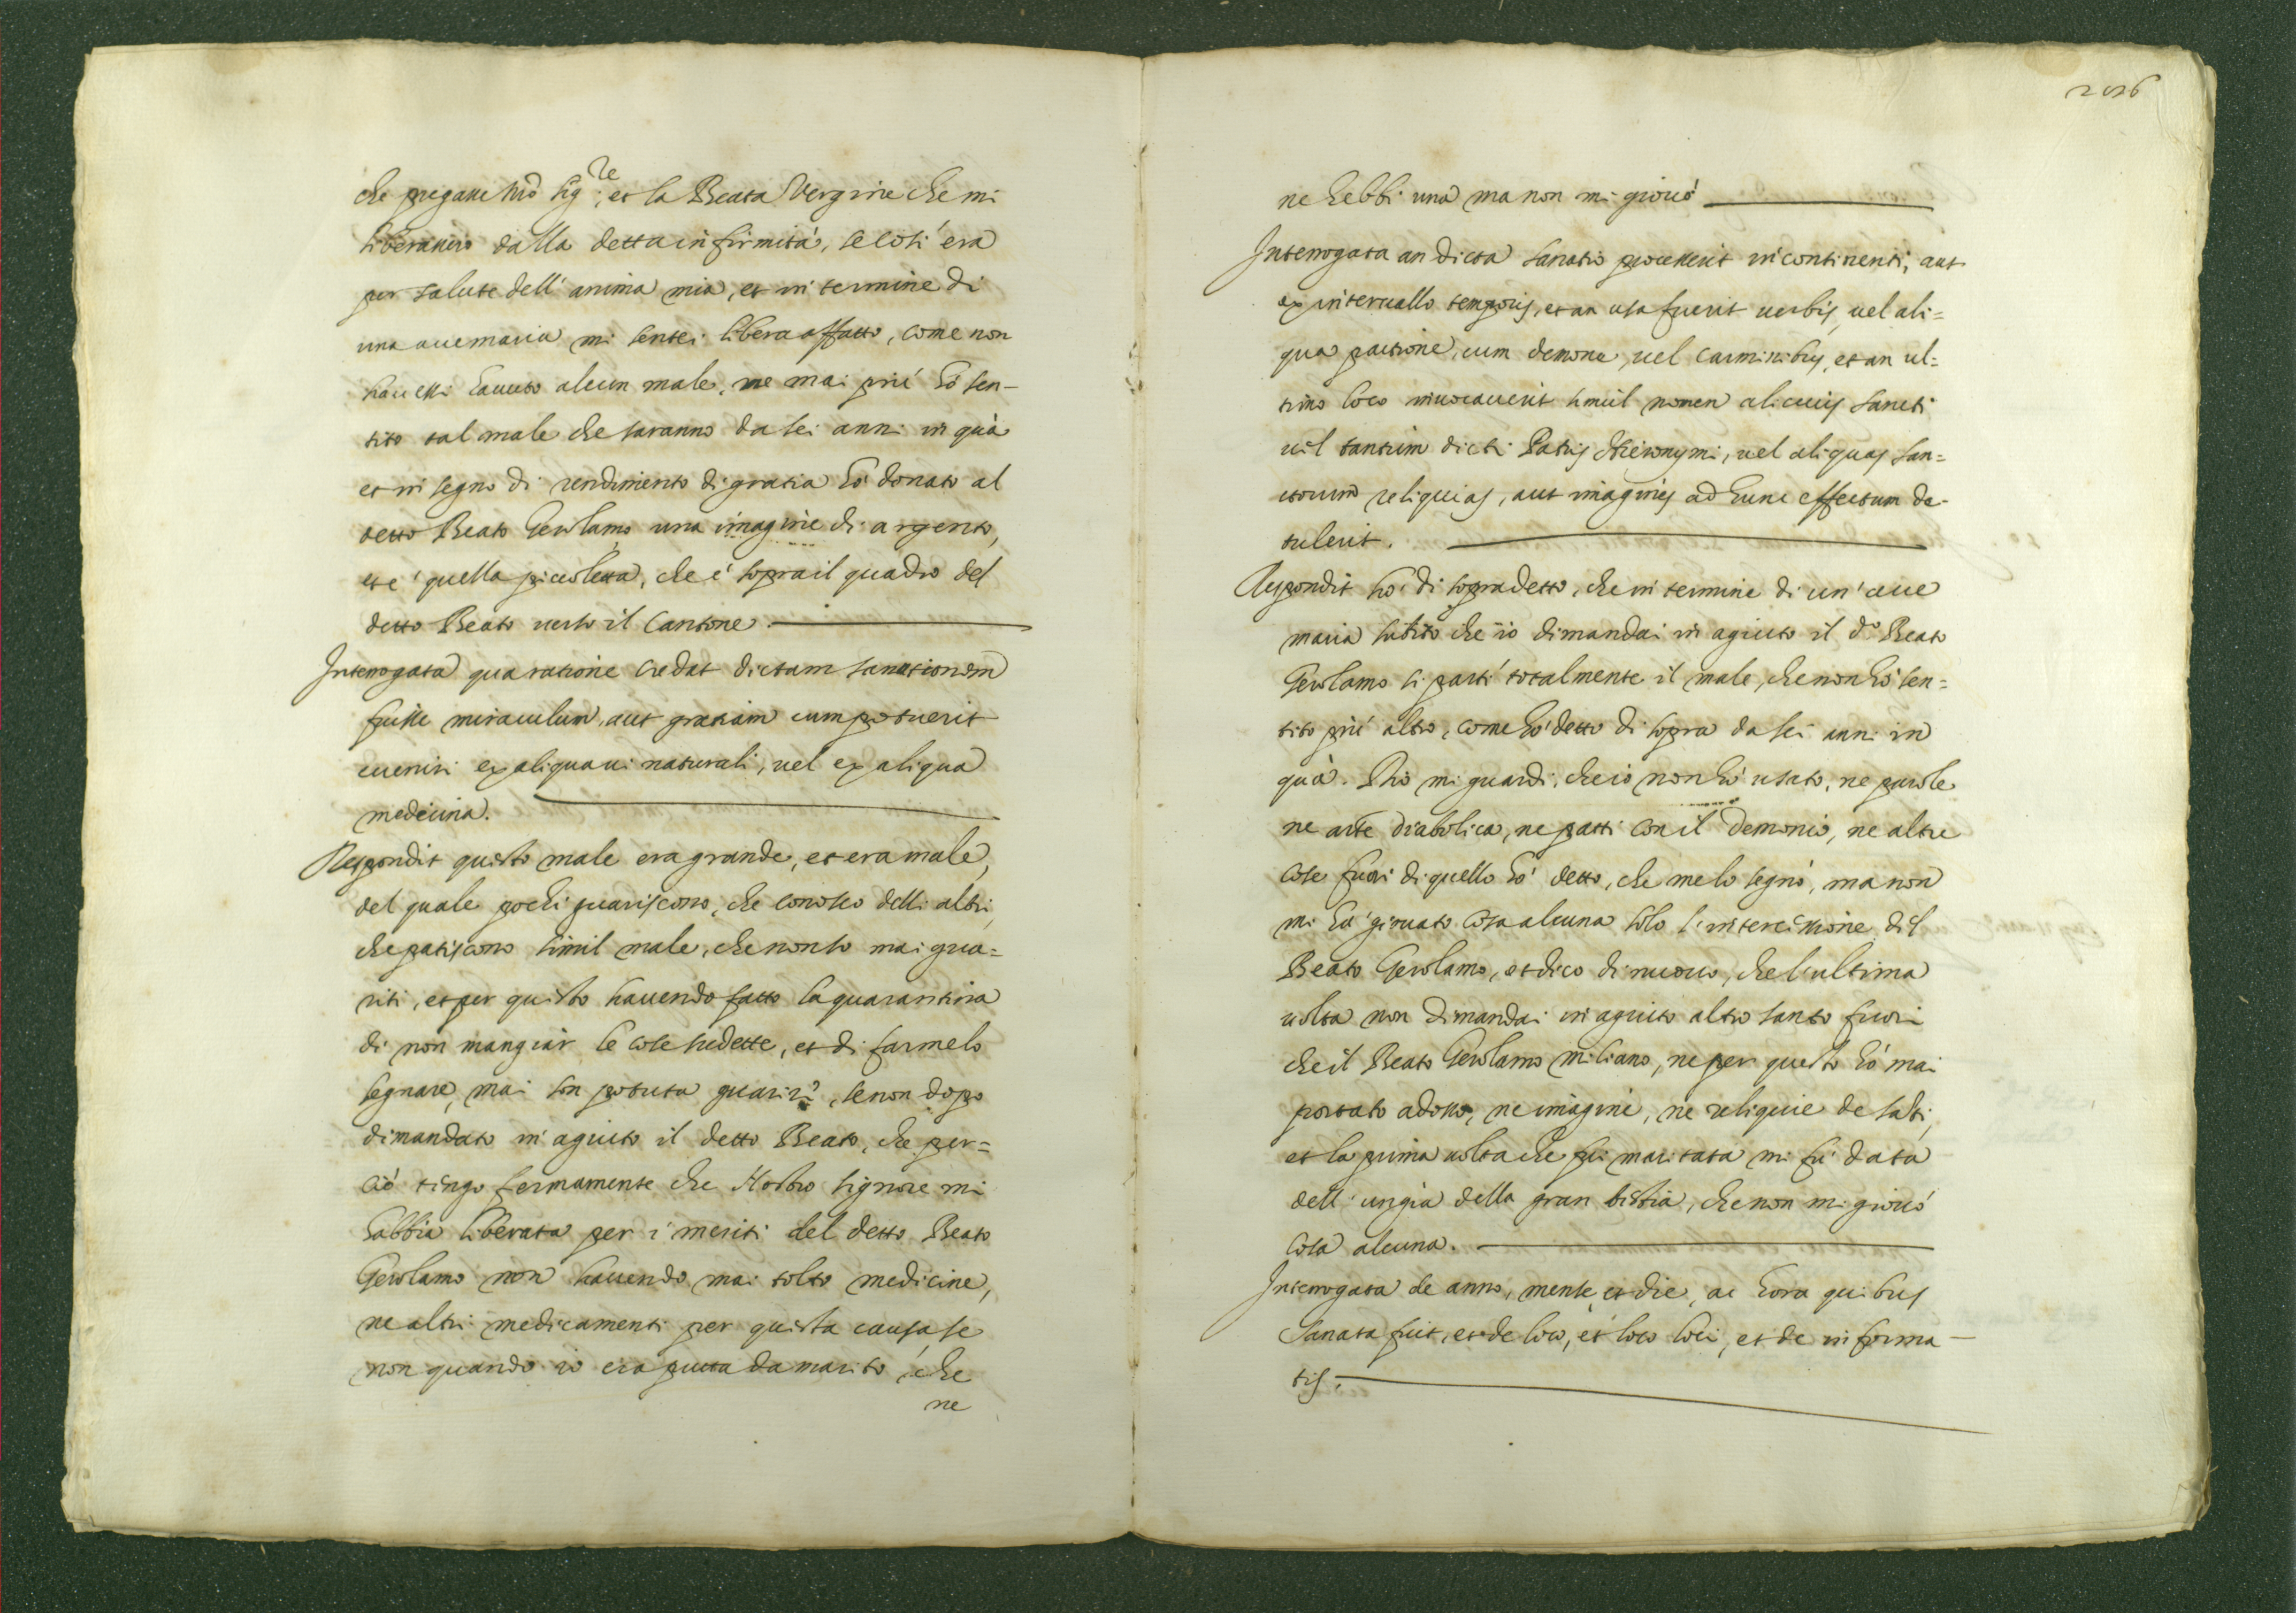 che pregasse nrõ sig.re et la Beata Vergine che mi
liberassero dalla detta infirmità, se così era
per salute dell'anima mia, et in termine di
una auemaria mi sentei libera affatto, come non
hauessi hauuto alcun male, ne mai più hò sen-
tito tal male che saranno da sei anni in quà
et in segno di rendimento di gratia hò donato al
detto Beato Gerolamo una imagine di argento,
et è quella piccoletta, che è sopra il quadro del
detto Beato uerso il Cantone.
Interrogata qua ratione credat dictam sanationem
fuisse miraculum, aut gratiam cum potuerit
euenire ex aliqua ui naturali, uel ex aliqua
medicina.
Respondit questo male era grande, et era male,
del quale pochi guariscono, che conosco delli altri,
che patiscono simil male, che non so mai gua=
riti, et per questo hauendo fatto la quarantina
di non mangiar le cose sudette, et di farmelo
segnare, mai son potuta guarire, se non dopo
dimandato in agiuto il detto Beato, che per=
ciò tengo fermamente che Nostro Signore mi
habbia liberata per i meriti del detto Beato
Gerolamo non hauendo mai tolto medicine,
ne altri medicamenti per questa causa se
non quando io era putta da marito, che
ne
206
ne hebbi una ma non mi giouò
Interrogata an dicta sanatio processerit in continenti, aut
ex interuallo temporis, et an usa fuerit uerbis, uel ali=
qua pactione, cum demone, uel carminibus, et an ul=
timo loco inuocauerit simul nomen alicuius sancti
uel tantum dicti Patris Hieronymi, uel aliquas san=
ctorum reliquias, aut imagines ad hunc effectum de-
tulerit.
Respondit hò di sopra detto, che in termine di un'aue
maria subito che io dimandai in agiuto il d.o Beato
Gerolamo si partì totalmente il male, che non hò sen=
tito più altro, come hò detto di sopra da sei anni in
quà. Dio mi guardi, che io non hò usato, ne parole
ne arte diabolica, ne patti con il Demonio, ne altre
cose fuori di quello hò detto, che me lo segnò, ma non
mi hà giouato cosa alcuna solo l'intercissione del
Beato Gerolamo, et dico di nuouo, che l'ultima
uolta non dimandai in agiuto altro santo fuori
che il Beato Gerolamo Miliano, ne per questo hò mai
portato adosso, ne imagini, ne reliquie de santi,
et la prima uolta che fui maritata mi fù data
dell'ungia della gran bestia, che non mi giouò
cosa alcuna.
Interrogata de anno, mense, et die, ac hora quibus
sanata fuit, et de loco, et loco loci, et de informa-
tis.